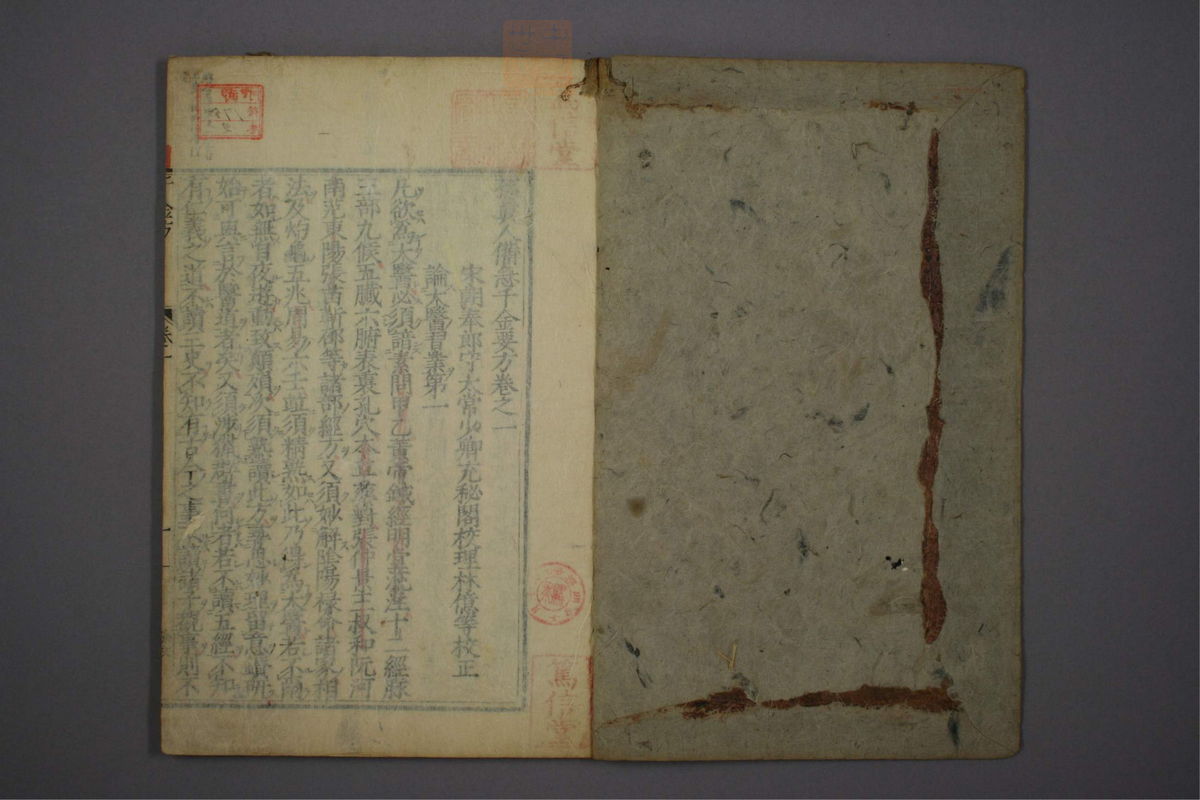 孫真人備急千金要方卷之一
宋朝奉郎守太常少卿充秘閣校理林億等校正
論大醫習業第一
凡欲為大醫必須諳素問甲乙黃帝鍼經明堂流注十二經脉
三部九候五臟六腑表裏孔穴本草藥對張仲景王叔和阮河
南范東陽張苗靳邵等諸部經方又須妙解陰陽祿命諸家相
法及灼龜五兆周易六壬並須精熟如此乃得為大醫若不爾
者如無目夜遊動致顛殞次須熟讀此方尋思妙理留意鑽研
始可與言於醫道者矣又須涉獵羣書何者若不讀五經不知
有仁義之道不讀三史不知有古今之事不讀諸子覩事則不
千金方
卷一
篤信堂